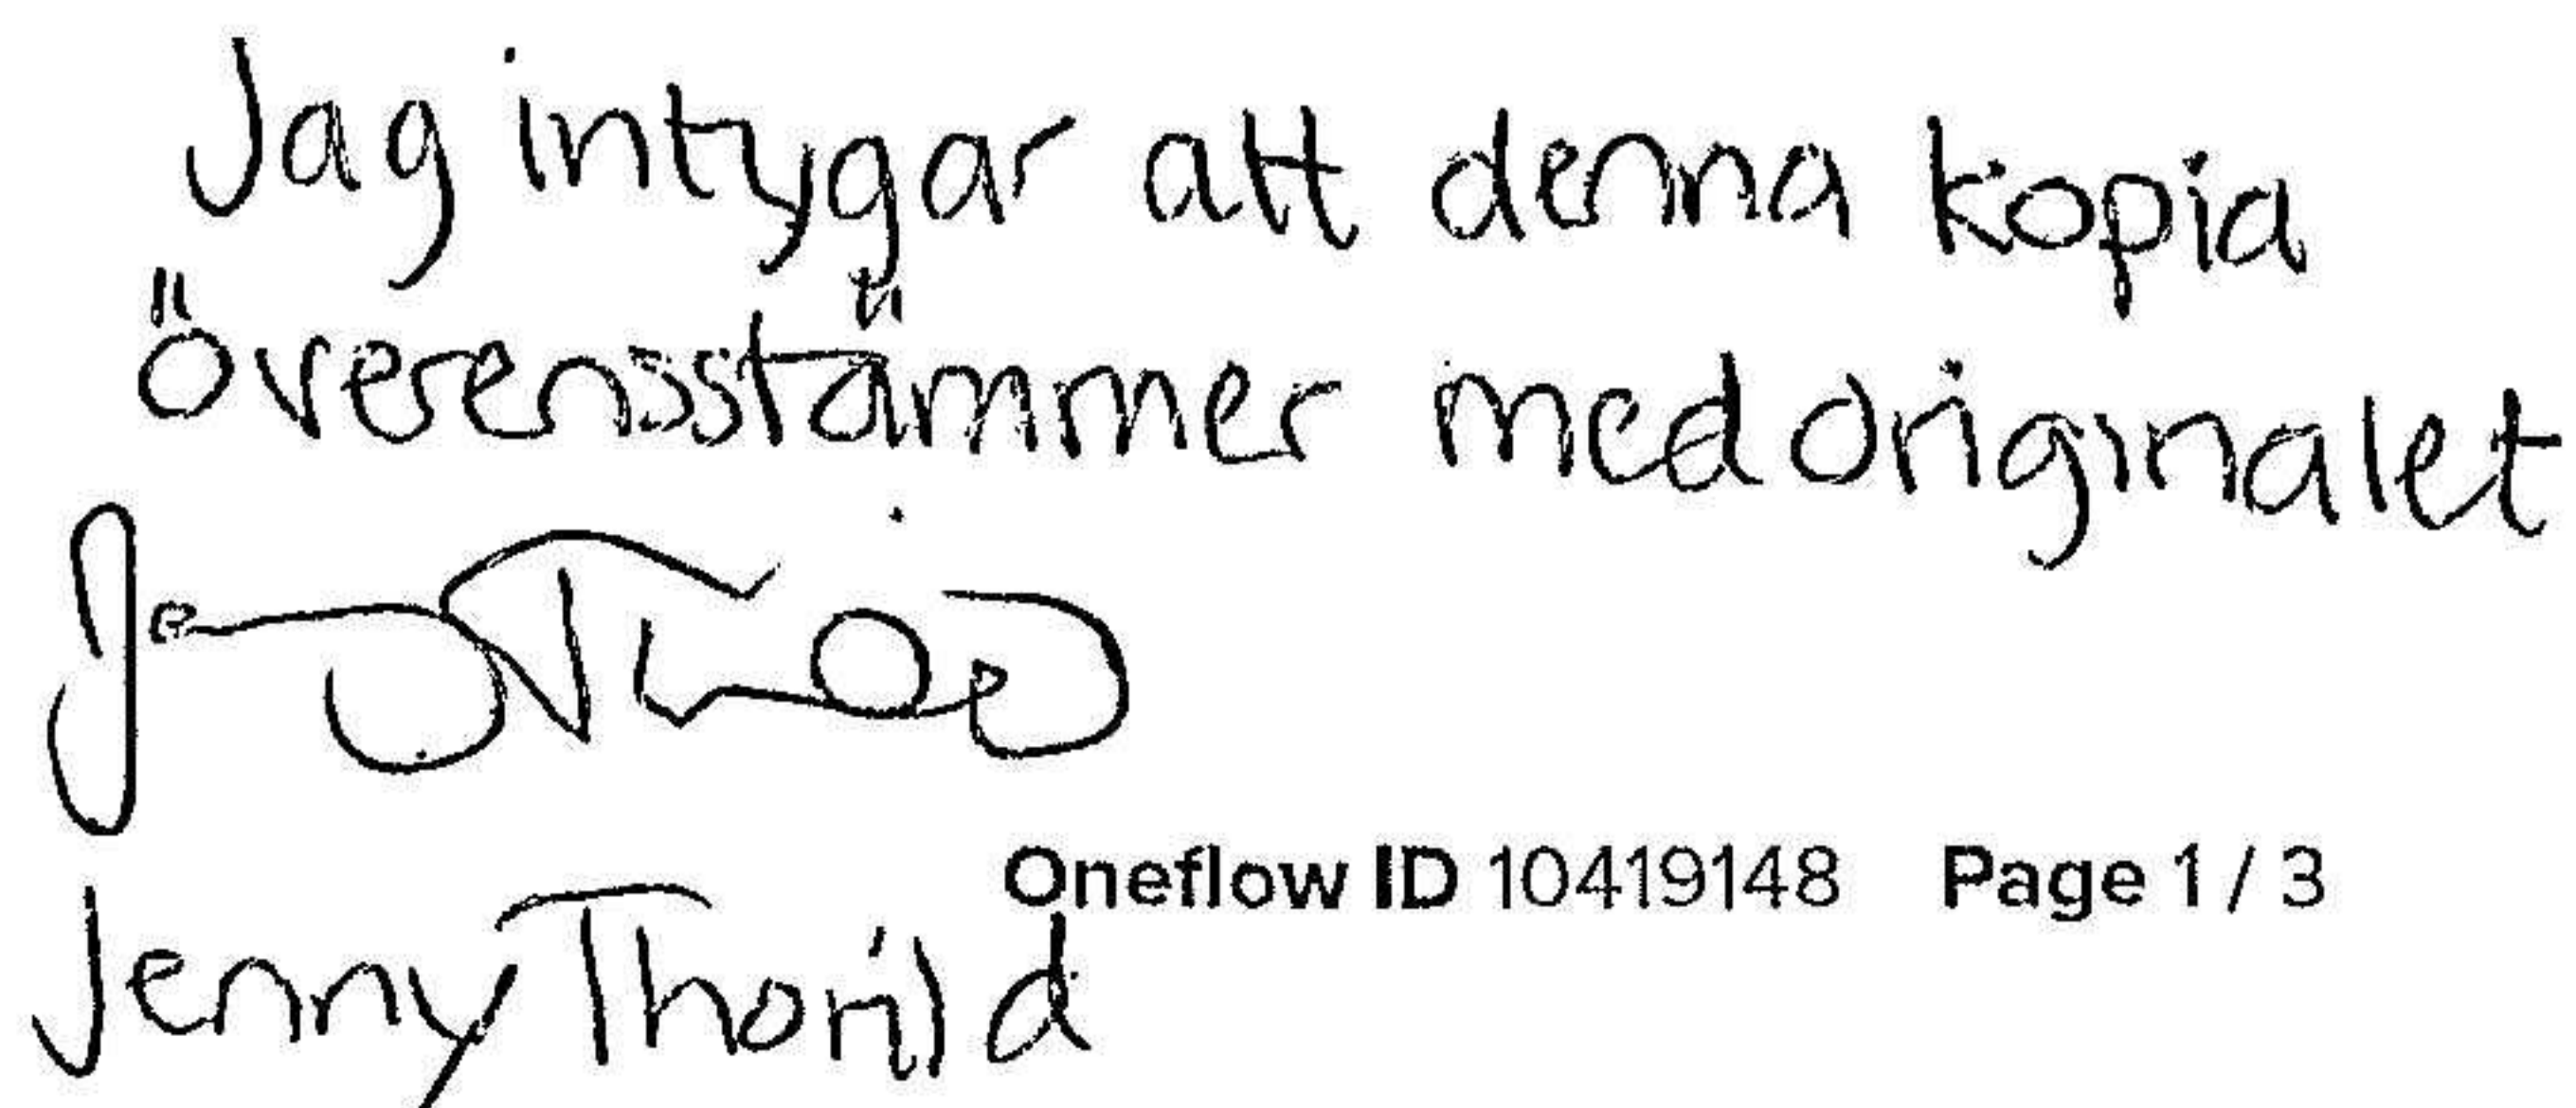 Jag intygar att denna kopia
överensstämmer med originalet
Oneflow ID 10419148 Page 1 / 3
Jenny Thorild